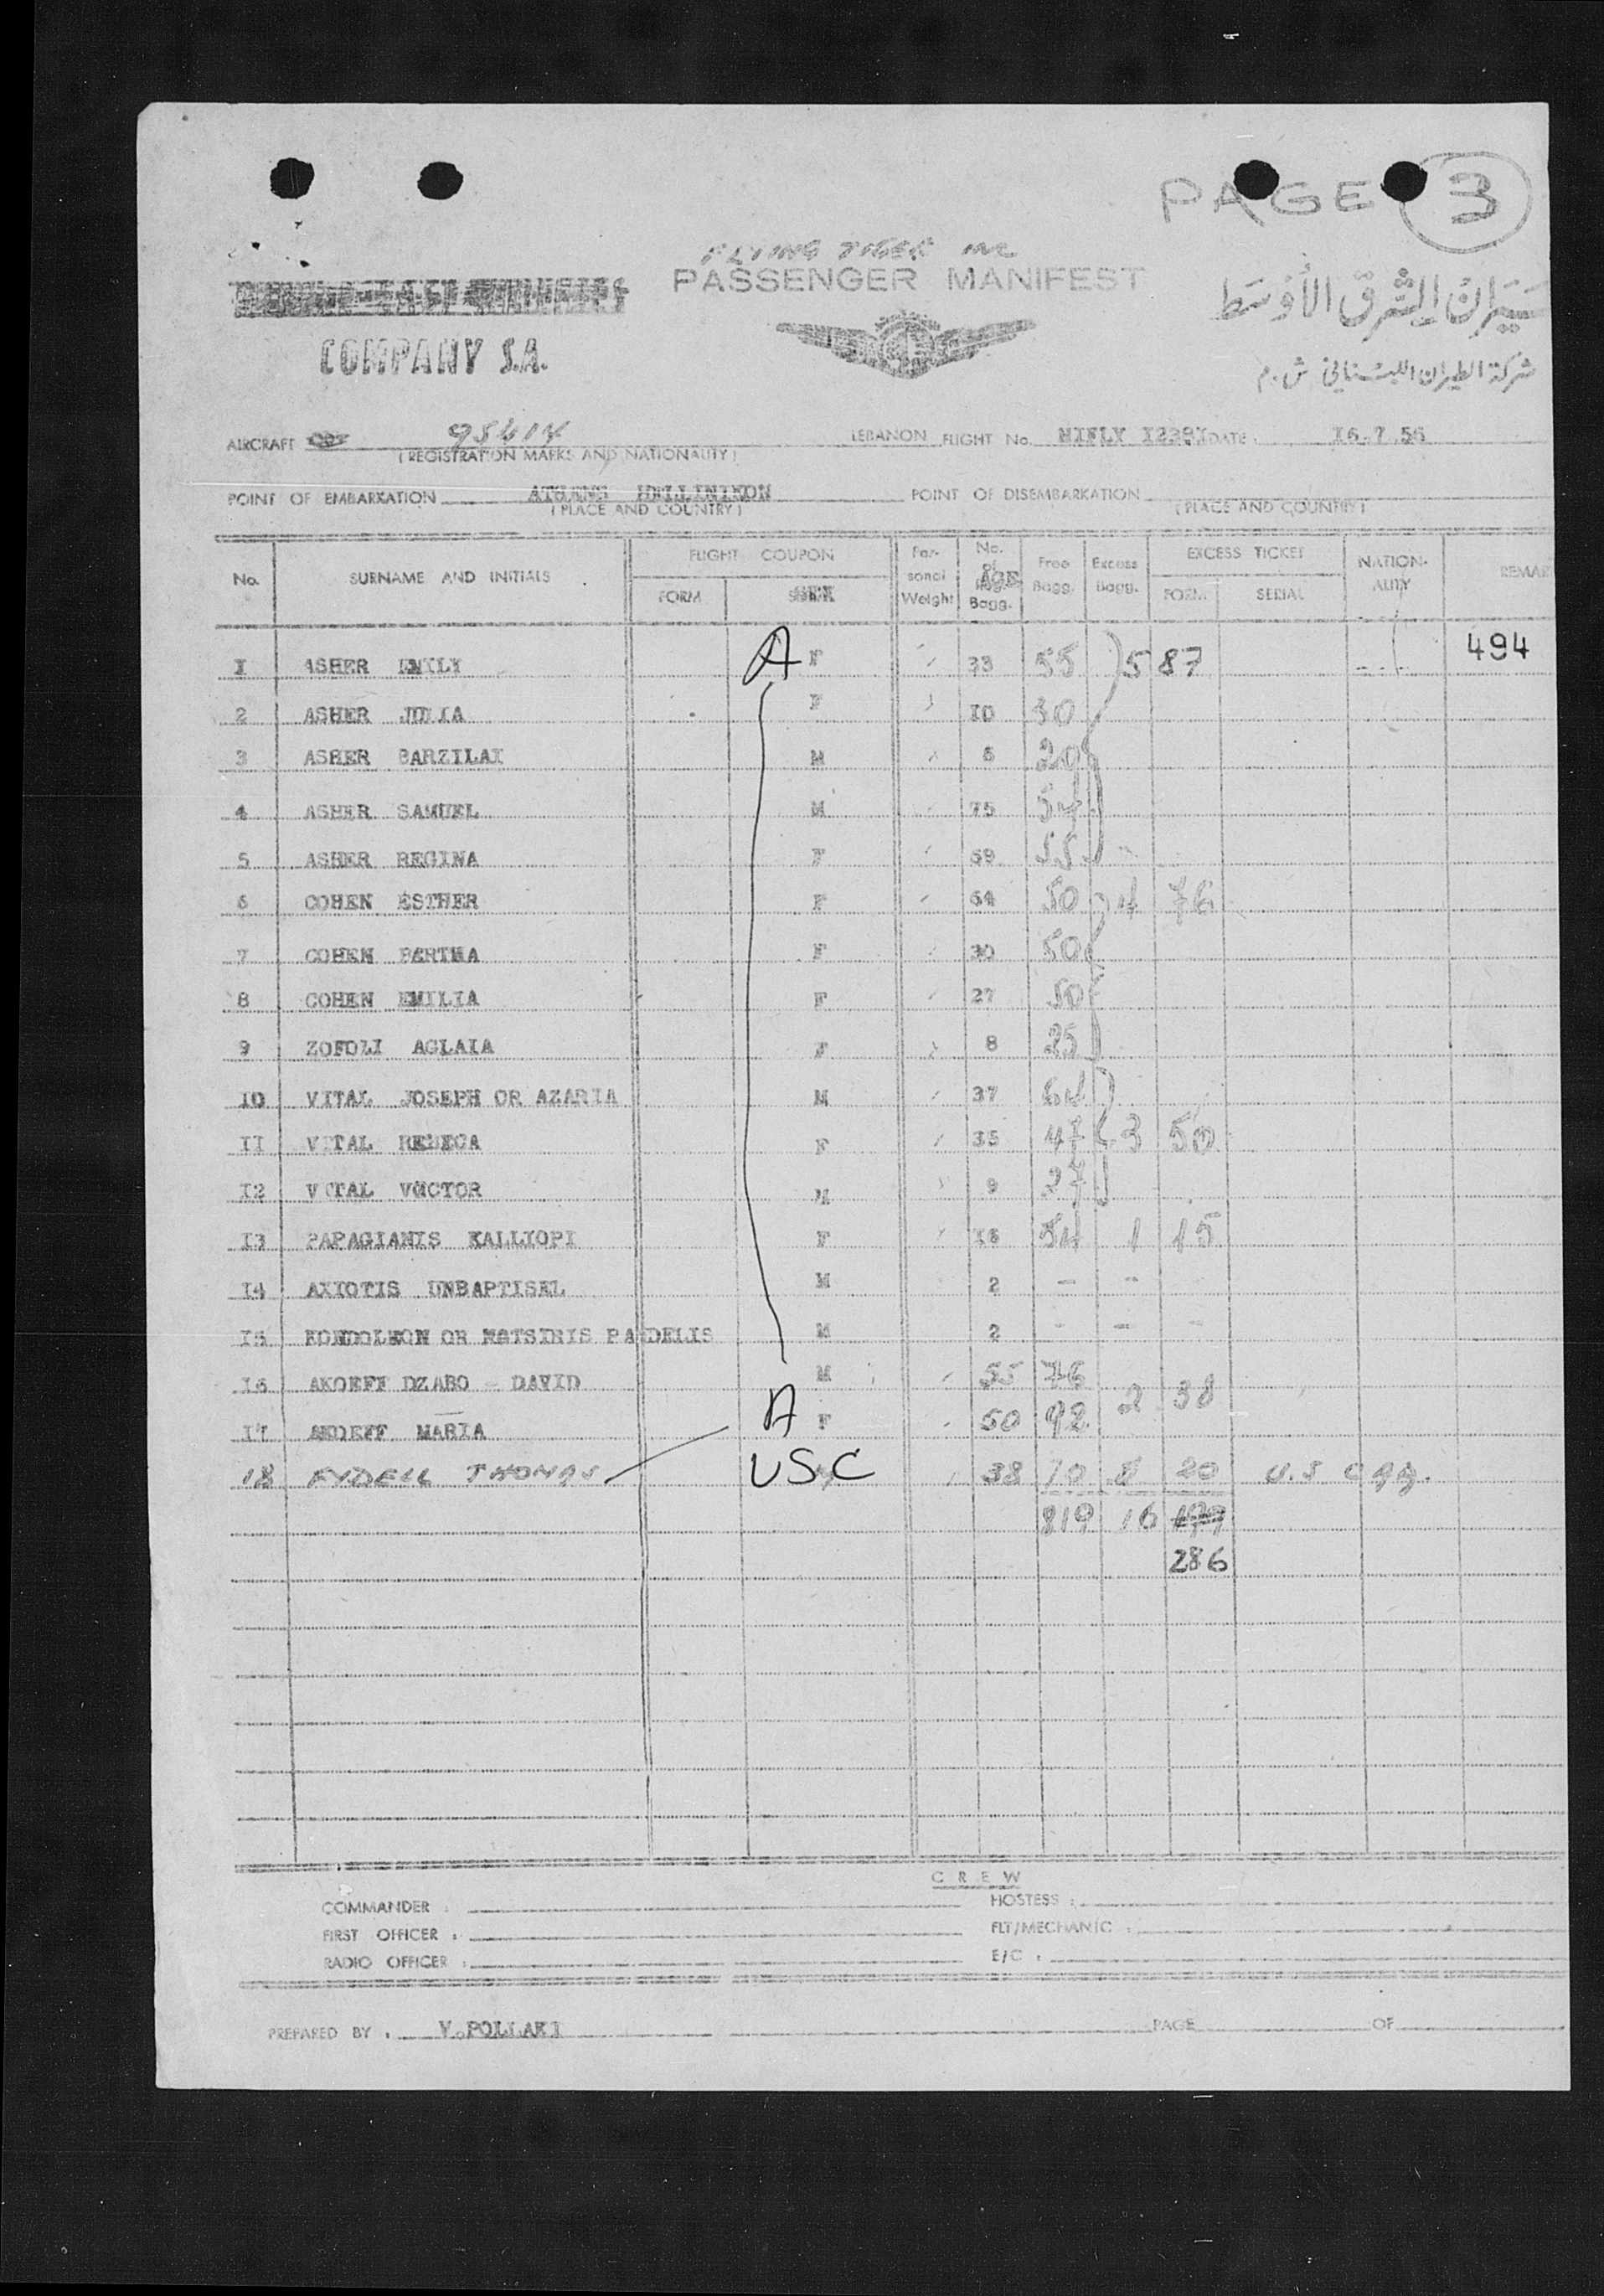 PAGE 3
FLYING TIGER INC
PASSENGER MANIFEST
COMPANY S.A.
طيران الشرق الأوسط
شركة الطيران اللبناني ش.م
AIRCRAFT
LEBANON FLIGHT No. DATE: 16.7.56
(REGISTRATION MARKS AND NATIONALITY)
POINT OF EMBARKATION ATHENS HELLINIKON POINT OF DISEMBARKATION
(PLACE AND COUNTRY) (PLACE AND COUNTRY)
No. SURNAME AND INITIALS FLIGHT COUPON FORM SEX Personal Weight No. of Bagg. AGE Free Bagg. Excess Bagg. EXCESS TICKET FORM SERIAL NATIONALITY REMAR
1 ASHER EMILY A F 33 55 5 87 494
2 ASHER JULIA F 10 30
3 ASHER BARZILAI M 6 20
4 ASHER SAMUEL M 75 54
5 ASHER REGINA F 69 55 -
6 COHEN ESTHER F 64 50 4 76
7 COHEN BERTHA F 30 50
8 COHEN EMILIA F 27 50
9 ZOFOLI AGLAIA F 8 25
10 VITAL JOSEPH OR AZARIA M 37 64
11 VITAL REBECA F 35 47 3 50
12 VITAL VECTOR M 9 27
13 PAPAGIANIS KALLIOPI F 16 54 1 15
14 AXIOTIS UNBAPTISEL M 2 - -
15 KONDOLEON OR PANDELIS M 2 - - -
16 AKOEFF DZABO - DAVID M 55 76
2 38
17 AKOEFF MARIA A F 50 92
18 FYDELL THOMAS USC 38 70 20 U.S
819 16 199
286
CREW
COMMANDER : HOSTESS :
FIRST OFFICER : FLT/MECHANIC :
RADIO OFFICER : E/C :
PREPARED BY : V.POLLAKI PAGE OF